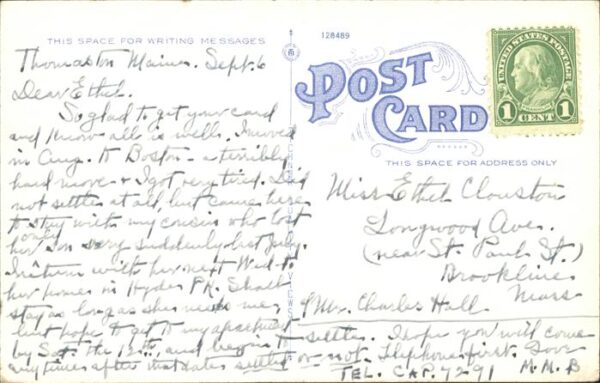 THIS SPACE FOR WRITING MESSAGES
128489
POST
CARD
THIS SPACE FOR ADDRESS ONLY
UNITED STATES POSTAGE
1 CENT 1
Thomaston Maine. Sept. 6
Dear Ethel.
So glad to get your card
and know all is well. I moved
in Aug. to Boston - a terribly
hard move & I got very tired. Did
not settle at all, but came here
to stay with my cousin who lost
her only son very suddenly last
I return with her next Wed. to
her home in Hyde Pk. Shall
stay as long as she needs me,
but hope to get to my apartment
by Sat. the 12th, and begin to settle. I hope you will come
any time after that date settled or not. Telephone first. Love
TEL. CAP. 7291 M.M.B
Miss Ethel Clouston
Longwood Ave.
(near St. Paul St.)
Brookline
Mass
℅ Mr. Charles Hall